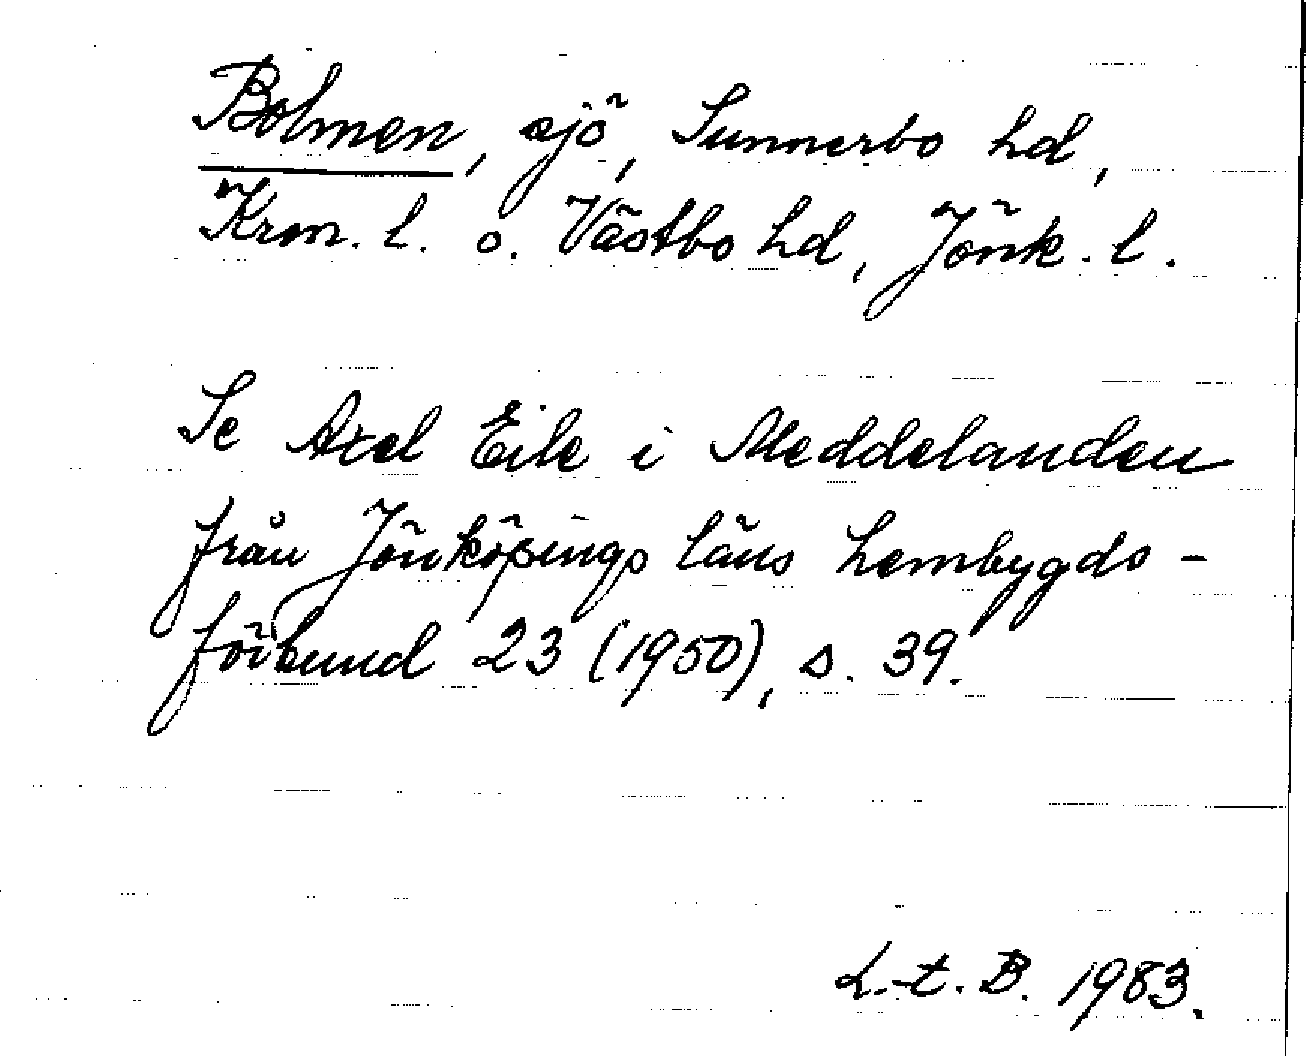 Bolmen, sjö, Sunnerbo hd,
Kron. l. o. Västbo hd, Jönk. l.
Se Axel Eile i Meddelanden
från Jönköpings läns hembygds-
förbund 23 (1950), s. 39.
L.-t. B. 1983.